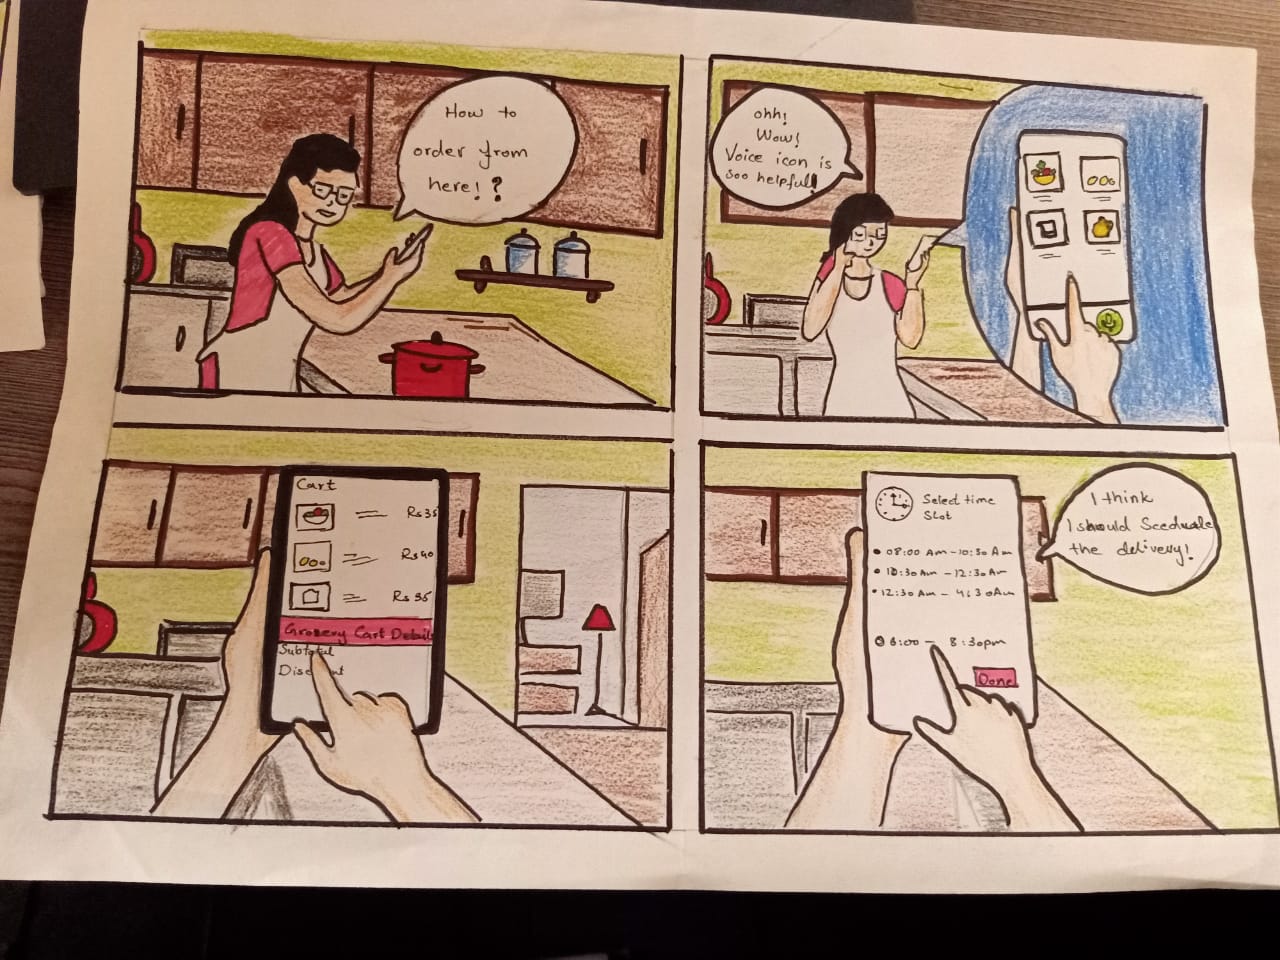 How to
order from
here! ?
ohh!
Wow!
Voice icon is
soo helpful!
Cart
Rs 35
Rs 40
Rs 35
Grocery Cart Details
Subtotal
Discount
Select time
Slot
08:00 Am - 10:30 Am
10:30 Am - 12:30 Am
12:30 Am - 4:30 Am
6:00 - 8:30pm
Done
I think
I should Sceduale
the delivery!